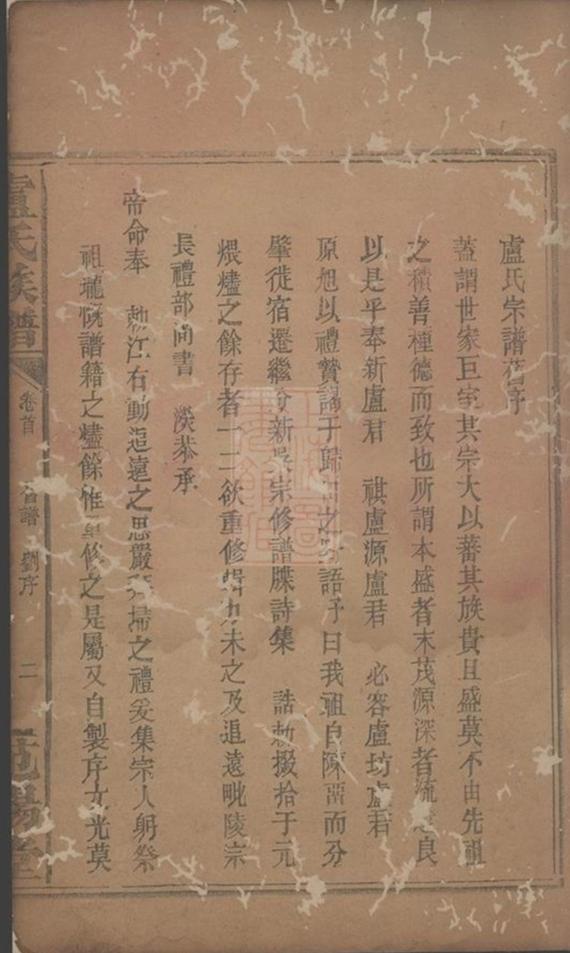 盧氏宗譜舊序
蓋謂世家巨室其宗大以蕃其族貴且盛莫不由先祖
之積善種德而致也所謂本盛者末茂源深者流長良
以是乎奉新盧君 祺盧源盧君 必容盧坊盧君
原旭以禮贄謁予歸田之語予曰我祖自陳留而分
肇徙宿遷繼分新吳宗修譜牒詩集 誥勅掇拾于元
煨燼之餘存者一二欲重修輯力未之及追遠毗陵宗
長禮部尚書 淡恭承
帝命奉 勅江右動追遠之思嚴拜掃之禮爰集宗人躬祭
祖壠慨譜籍之燼餘惟重修之是屬又自製序文光莫
盧氏族譜
卷首 舊譜 劉序 二
范陽堂